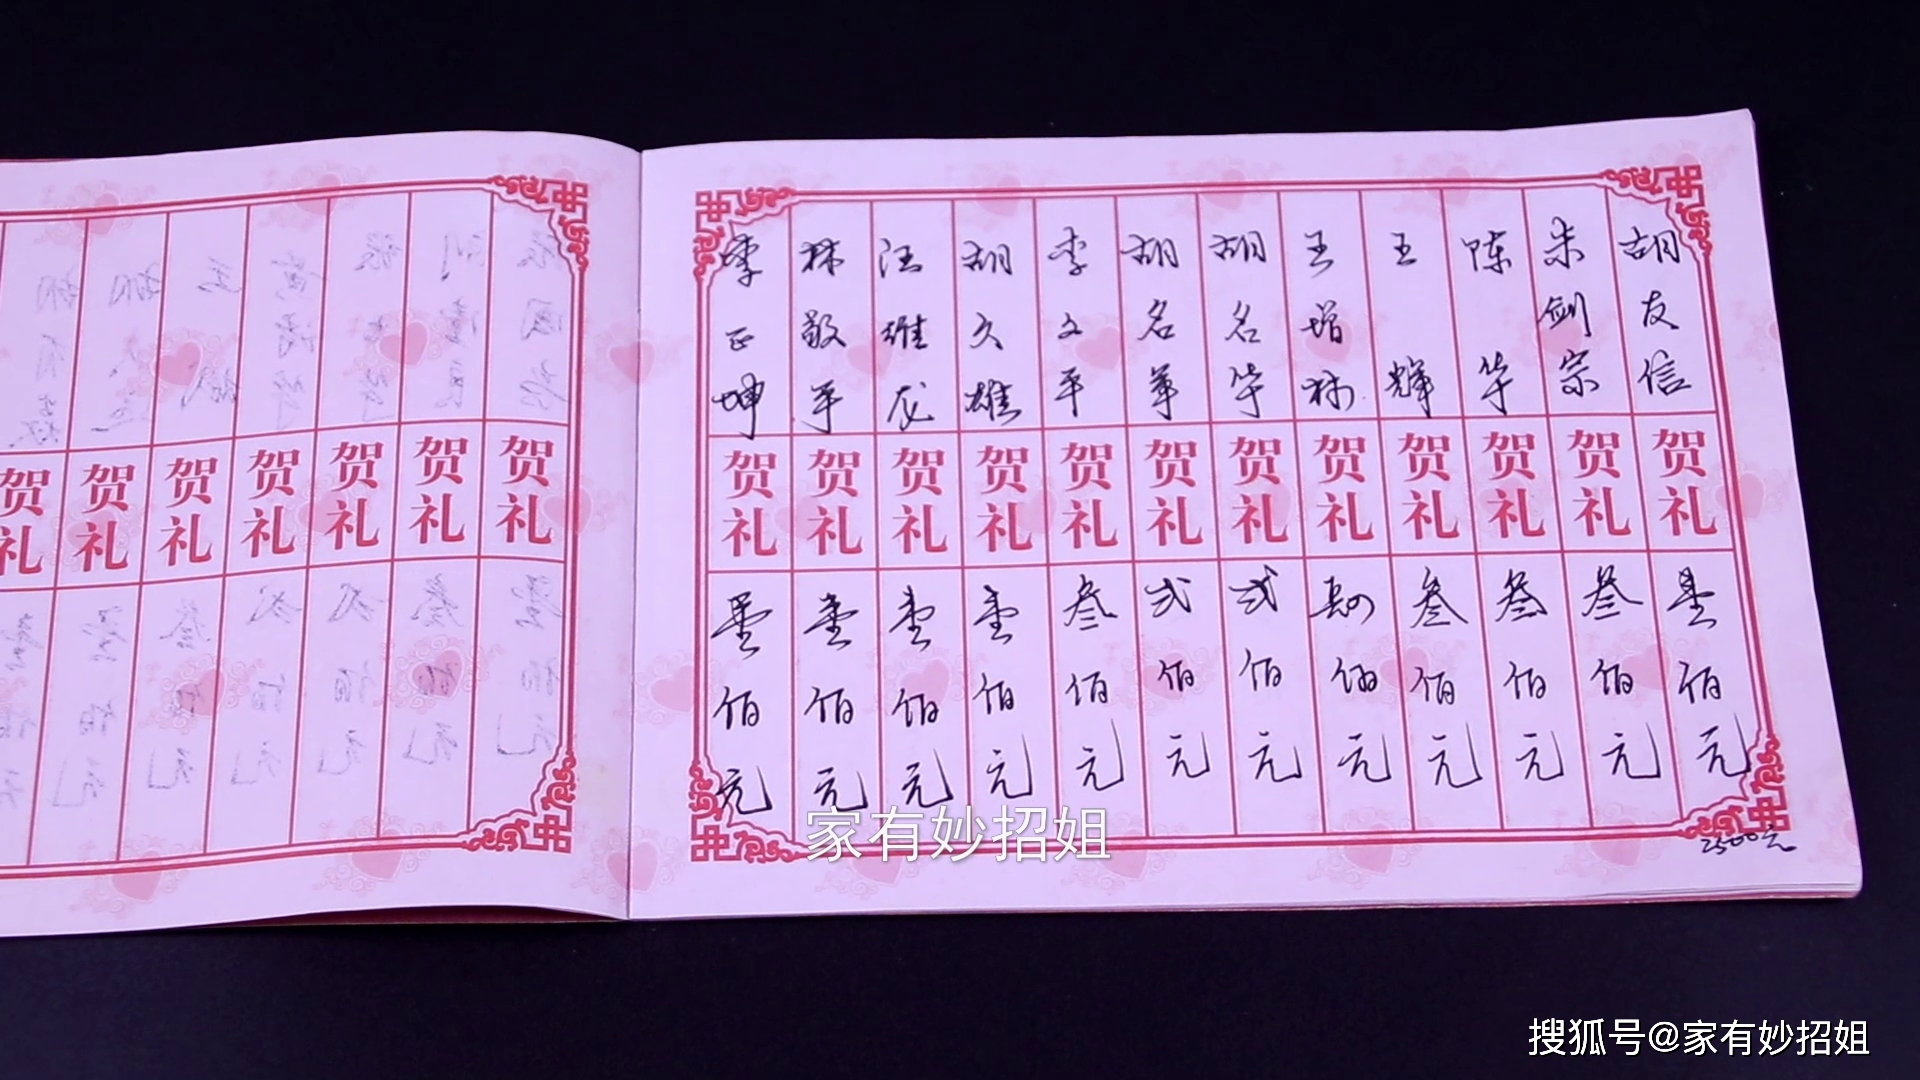 胡友信 贺礼 壹佰元
朱剑宗 贺礼 叁佰元
陈华 贺礼 叁佰元
王辉 贺礼 叁佰元
王增林 贺礼 佰元
胡名华 贺礼 弍佰元
胡名军 贺礼 弍佰元
李文平 贺礼 叁佰元
胡久雄 贺礼 壹佰元
汪维龙 贺礼 壹佰元
林敬平 贺礼 壹佰元
季正坤 贺礼 壹佰元
2500元
贺礼
贺礼
贺礼
贺礼
贺礼
贺礼
贺礼
家有妙招姐
搜狐号@家有妙招姐